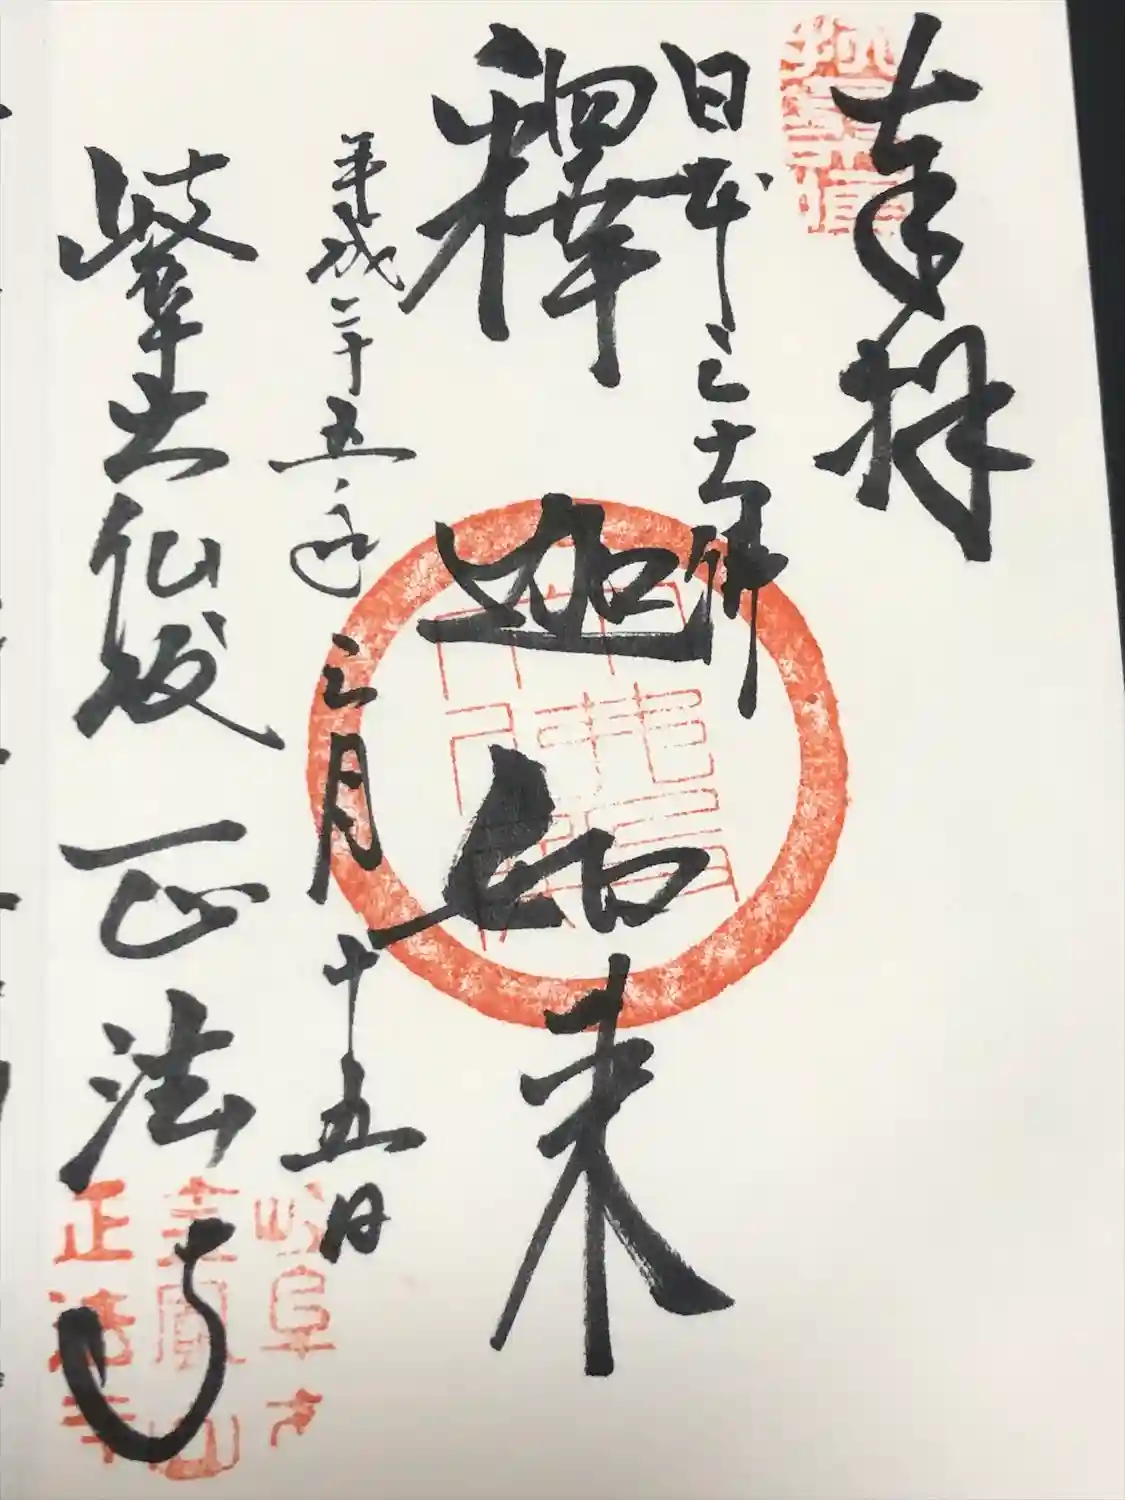 奉拝
日本三大佛
釋迦如来
平成二十五年三月十五日
正法寺
岐阜大
金鳳山
正法寺